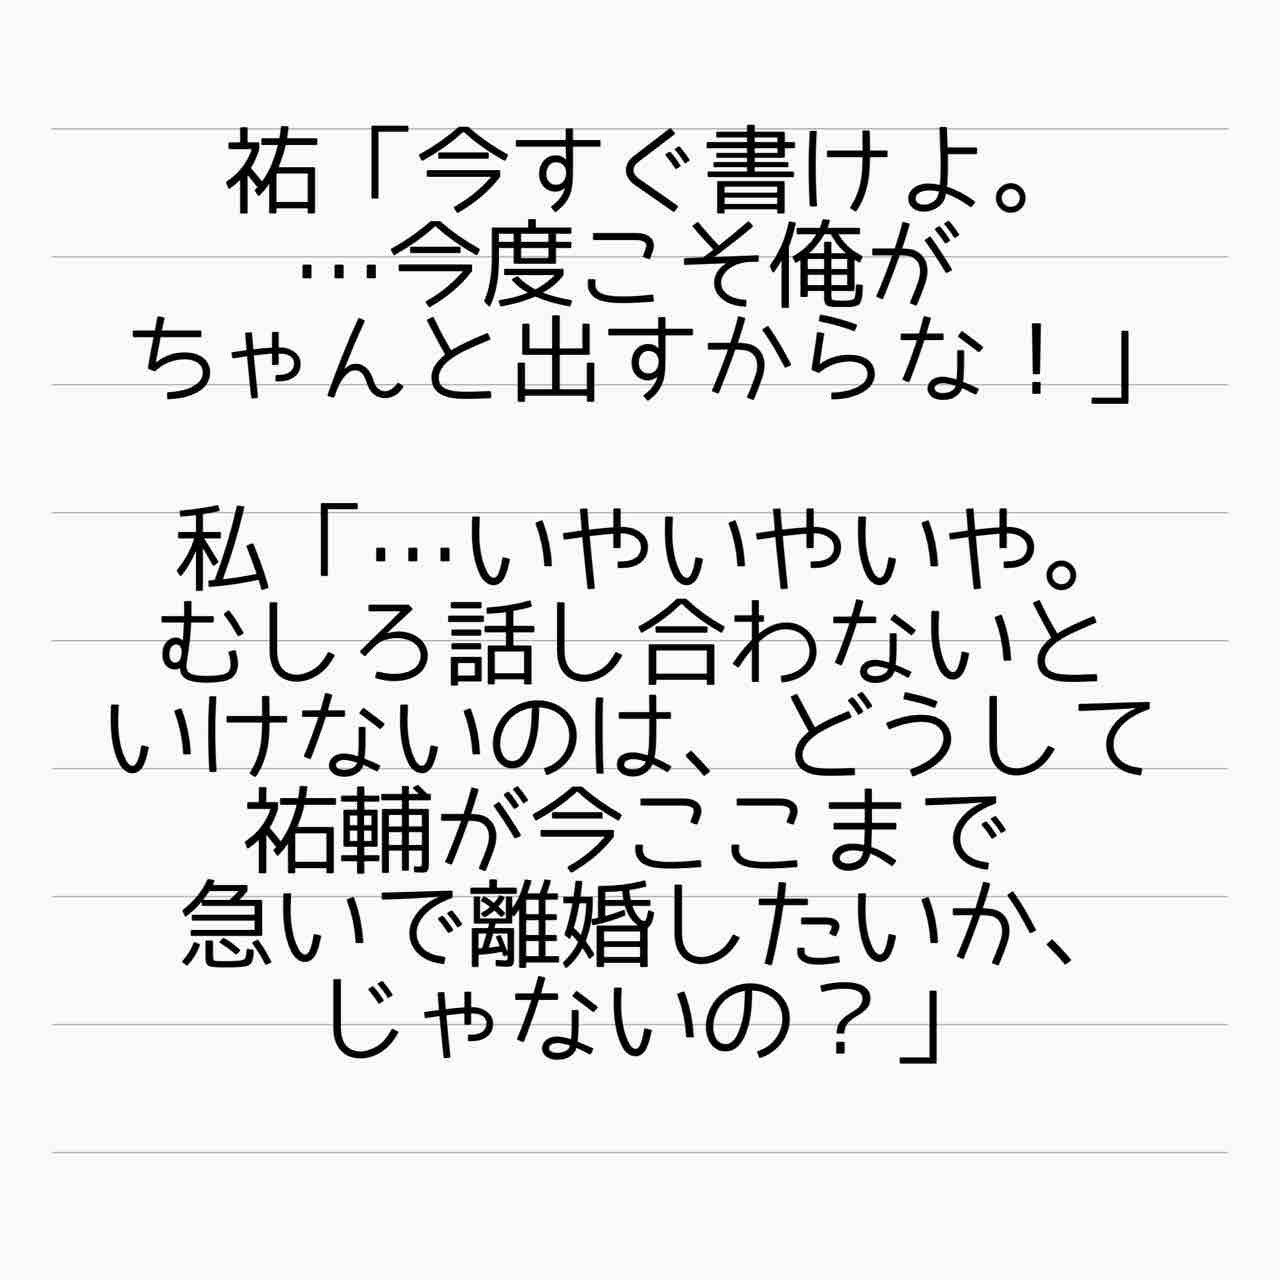 祐「今すぐ書けよ。
…今度こそ俺が
ちゃんと出すからな！」
私「…いやいやいや。
むしろ話し合わないと
いけないのは、どうして
祐輔が今ここまで
急いで離婚したいか、
じゃないの？」